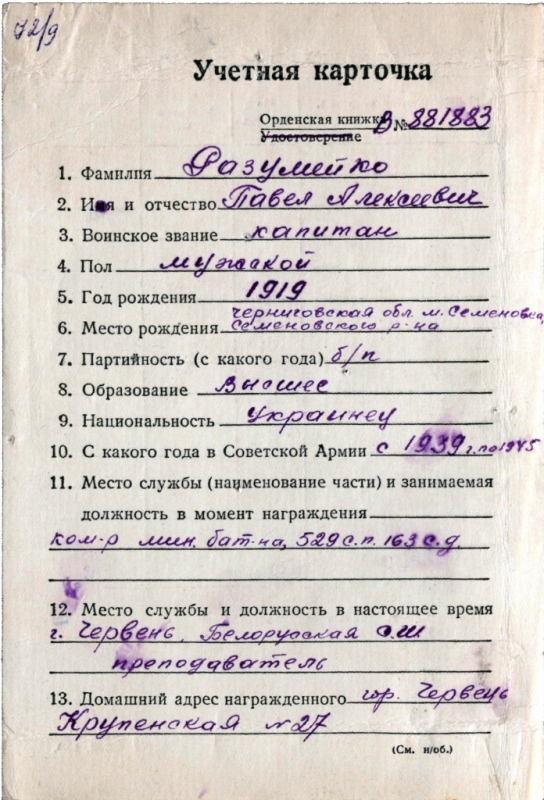 72/9
Учетная карточка
Орденская книжка В № 881883
Удостоверение
1. Фамилия Разумейко
2. Имя и отчество Павел Алексеевич
3. Воинское звание капитан
4. Пол мужской
5. Год рождения 1919
Черниговская обл. м. Семеновка,
6. Место рождения Семеновского р-на
7. Партийность (с какого года) б/п
8. Образование Высшее
9. Национальность Украинец
10. С какого года в Советской Армии с 1939 г. по 1945
11. Место службы (наименование части) и занимаемая
должность в момент награждения
ком-р мин. бат-на, 529 с.п. 163 с.д.
12. Место службы и должность в настоящее время
г. Червень, Белорусская с.ш
преподаватель
13. Домашний адрес награжденного гор. Червень
Крупенская №27
(См. н/об.)